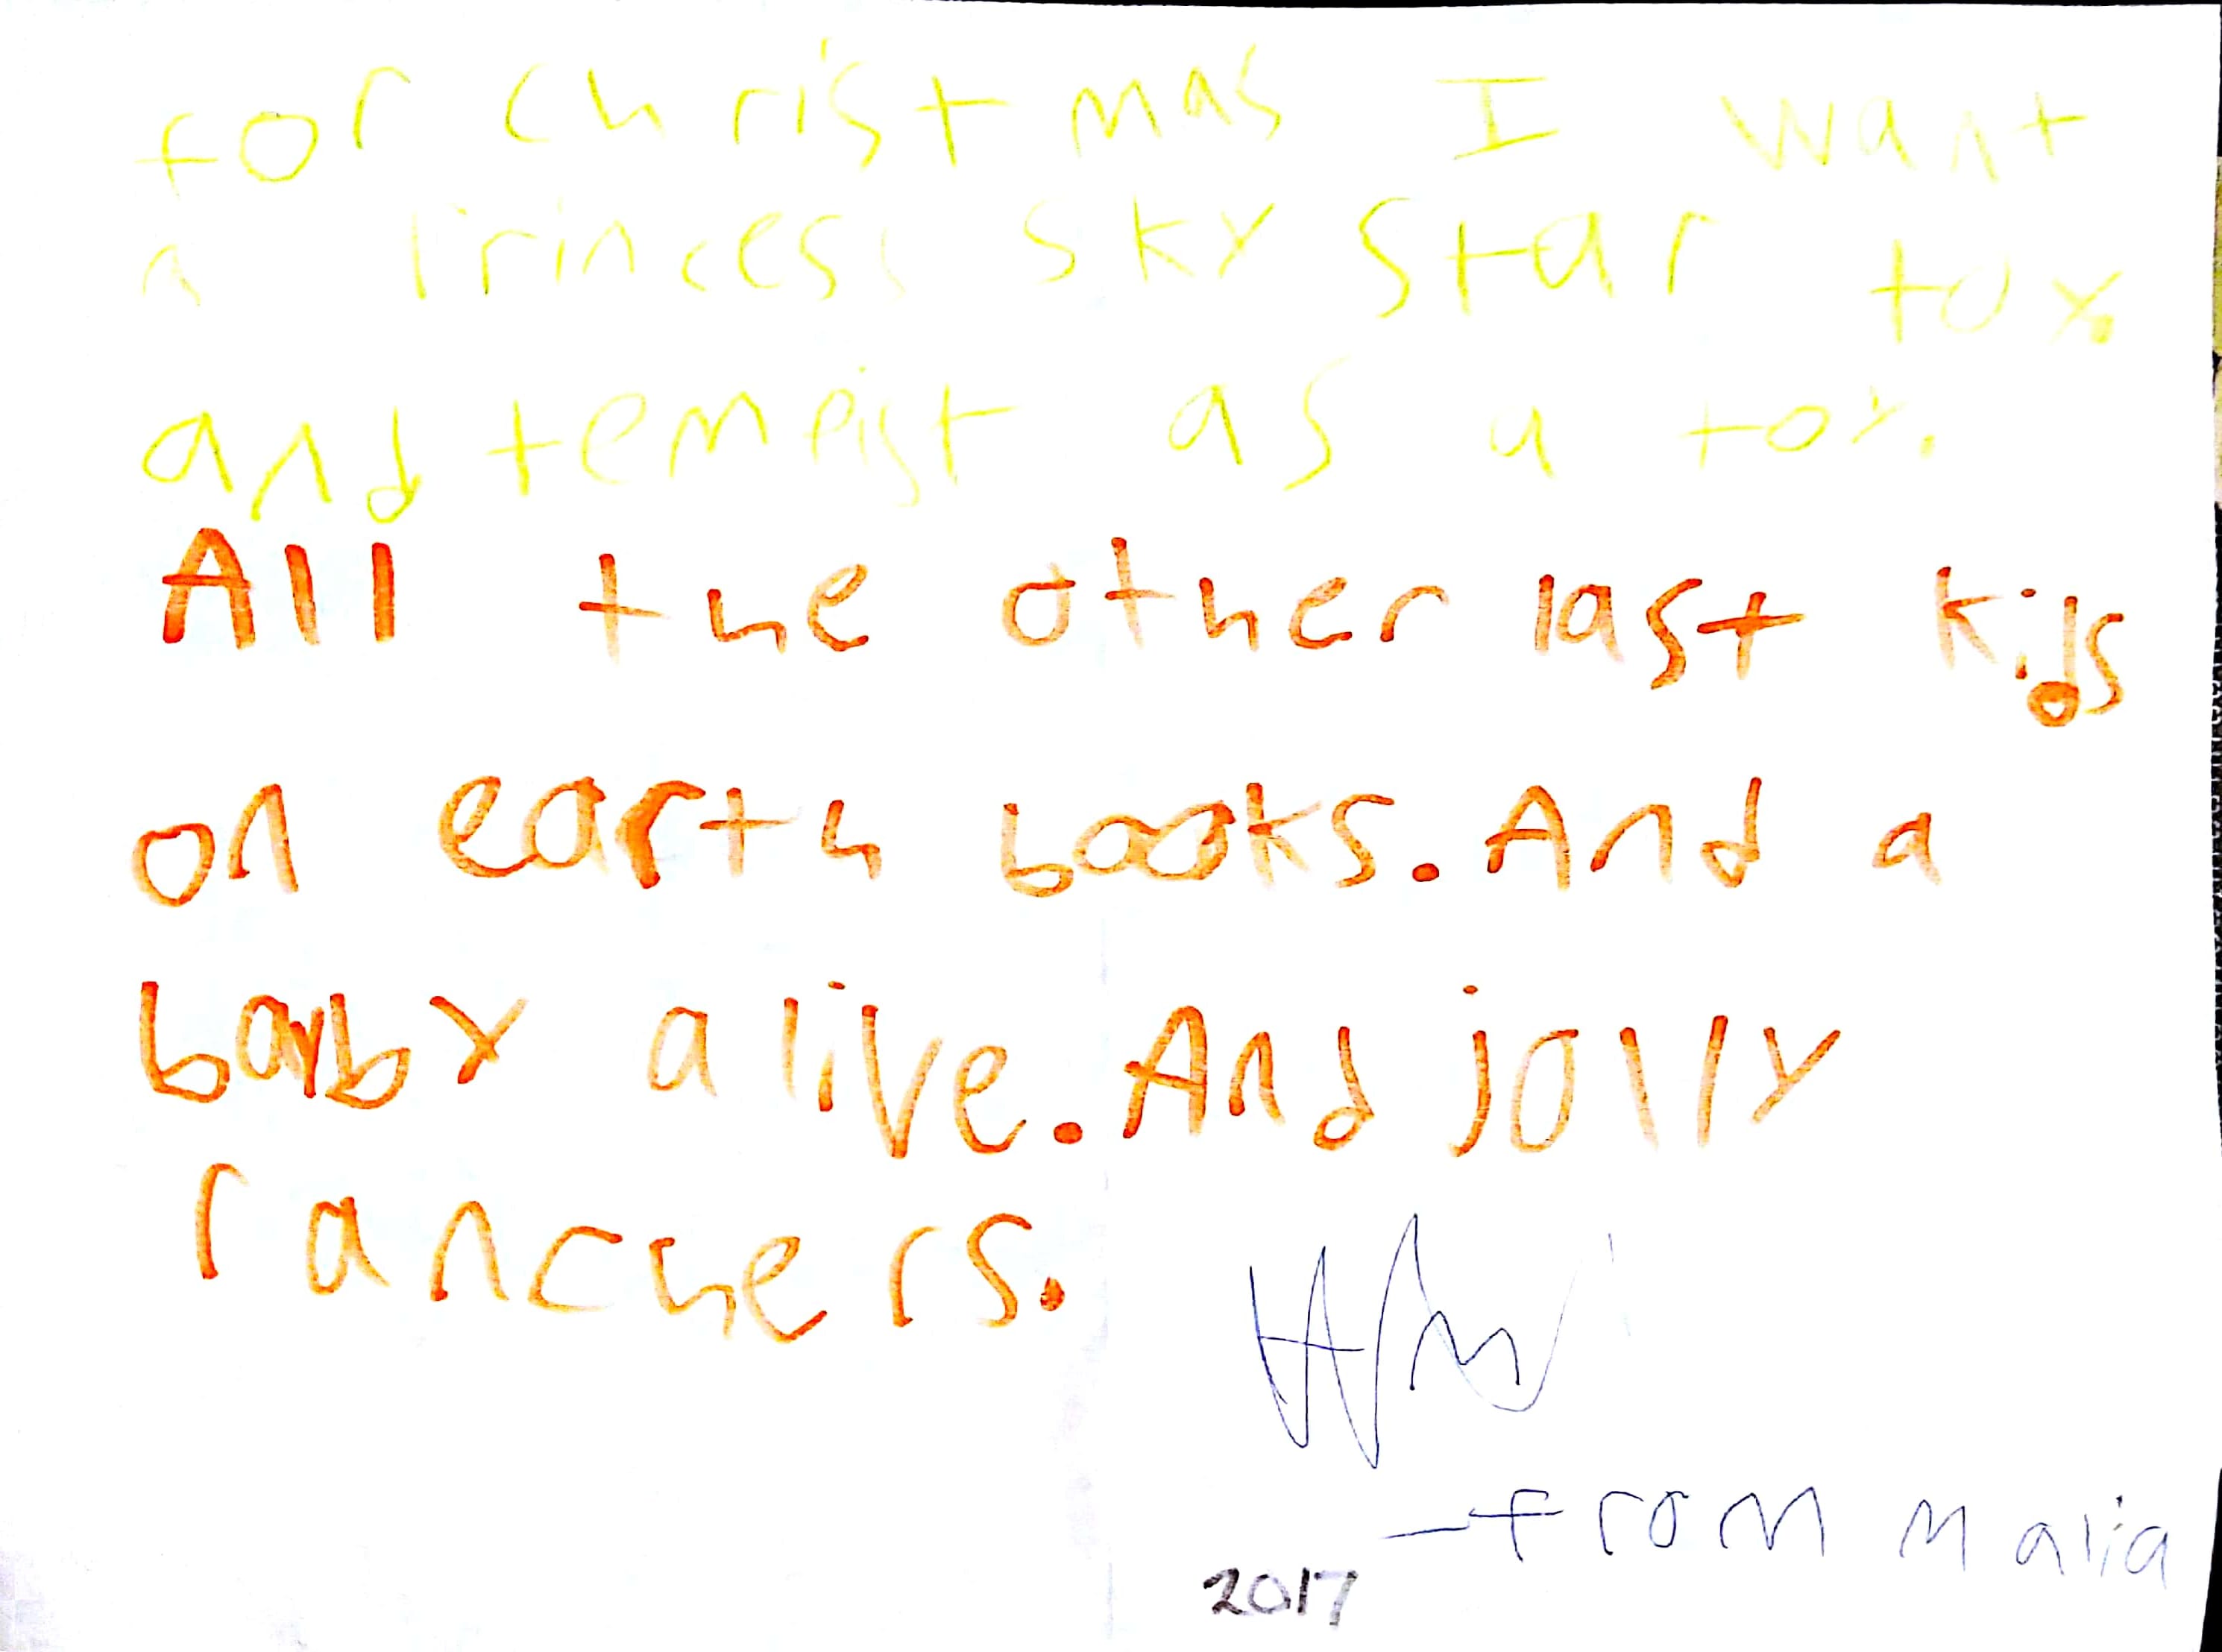 for christmas I want
a Princess sky star toy.
and tempist as a toy.
All the other last kids
on earth books. And a
baby alive. And jolly
ranchers.
-from Malia
2017